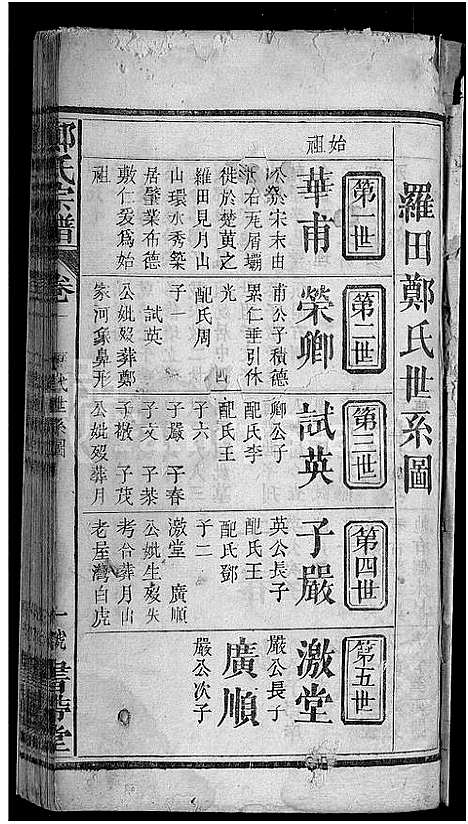 羅田鄭氏世系圖
第一世
始祖
華甫
公於宋末由
江右瓦屑壩
徙於楚黃之
羅田見月山
山環水秀築
居肇業布德
敷仁爰為始
祖
第二世
榮卿
甫公子積德
累仁垂引休
光
配氏周
子一
試英
公妣歿葬鄭
家河象鼻形
第三世
試英
卿公子
配氏李
配氏王
子六
子嚴 子春
子文 子棻
子檄 子茂
公妣歿葬月
第四世
子嚴
英公長子
配氏王
配氏鄧
子二
激堂 廣順
公妣生歿失
考合葬月山
老屋灣白虎
第五世
激堂
嚴公長子
廣順
嚴公次子
鄭氏宗譜
卷
代世系圖
一
書帶堂